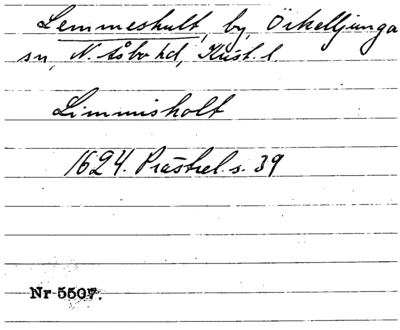 Lemmeshult, by, Örkelljunga
sn, N. Åsbo hd, Krist. l.
Limmisholt
1624. Prästrel. s. 39
Nr 5507.